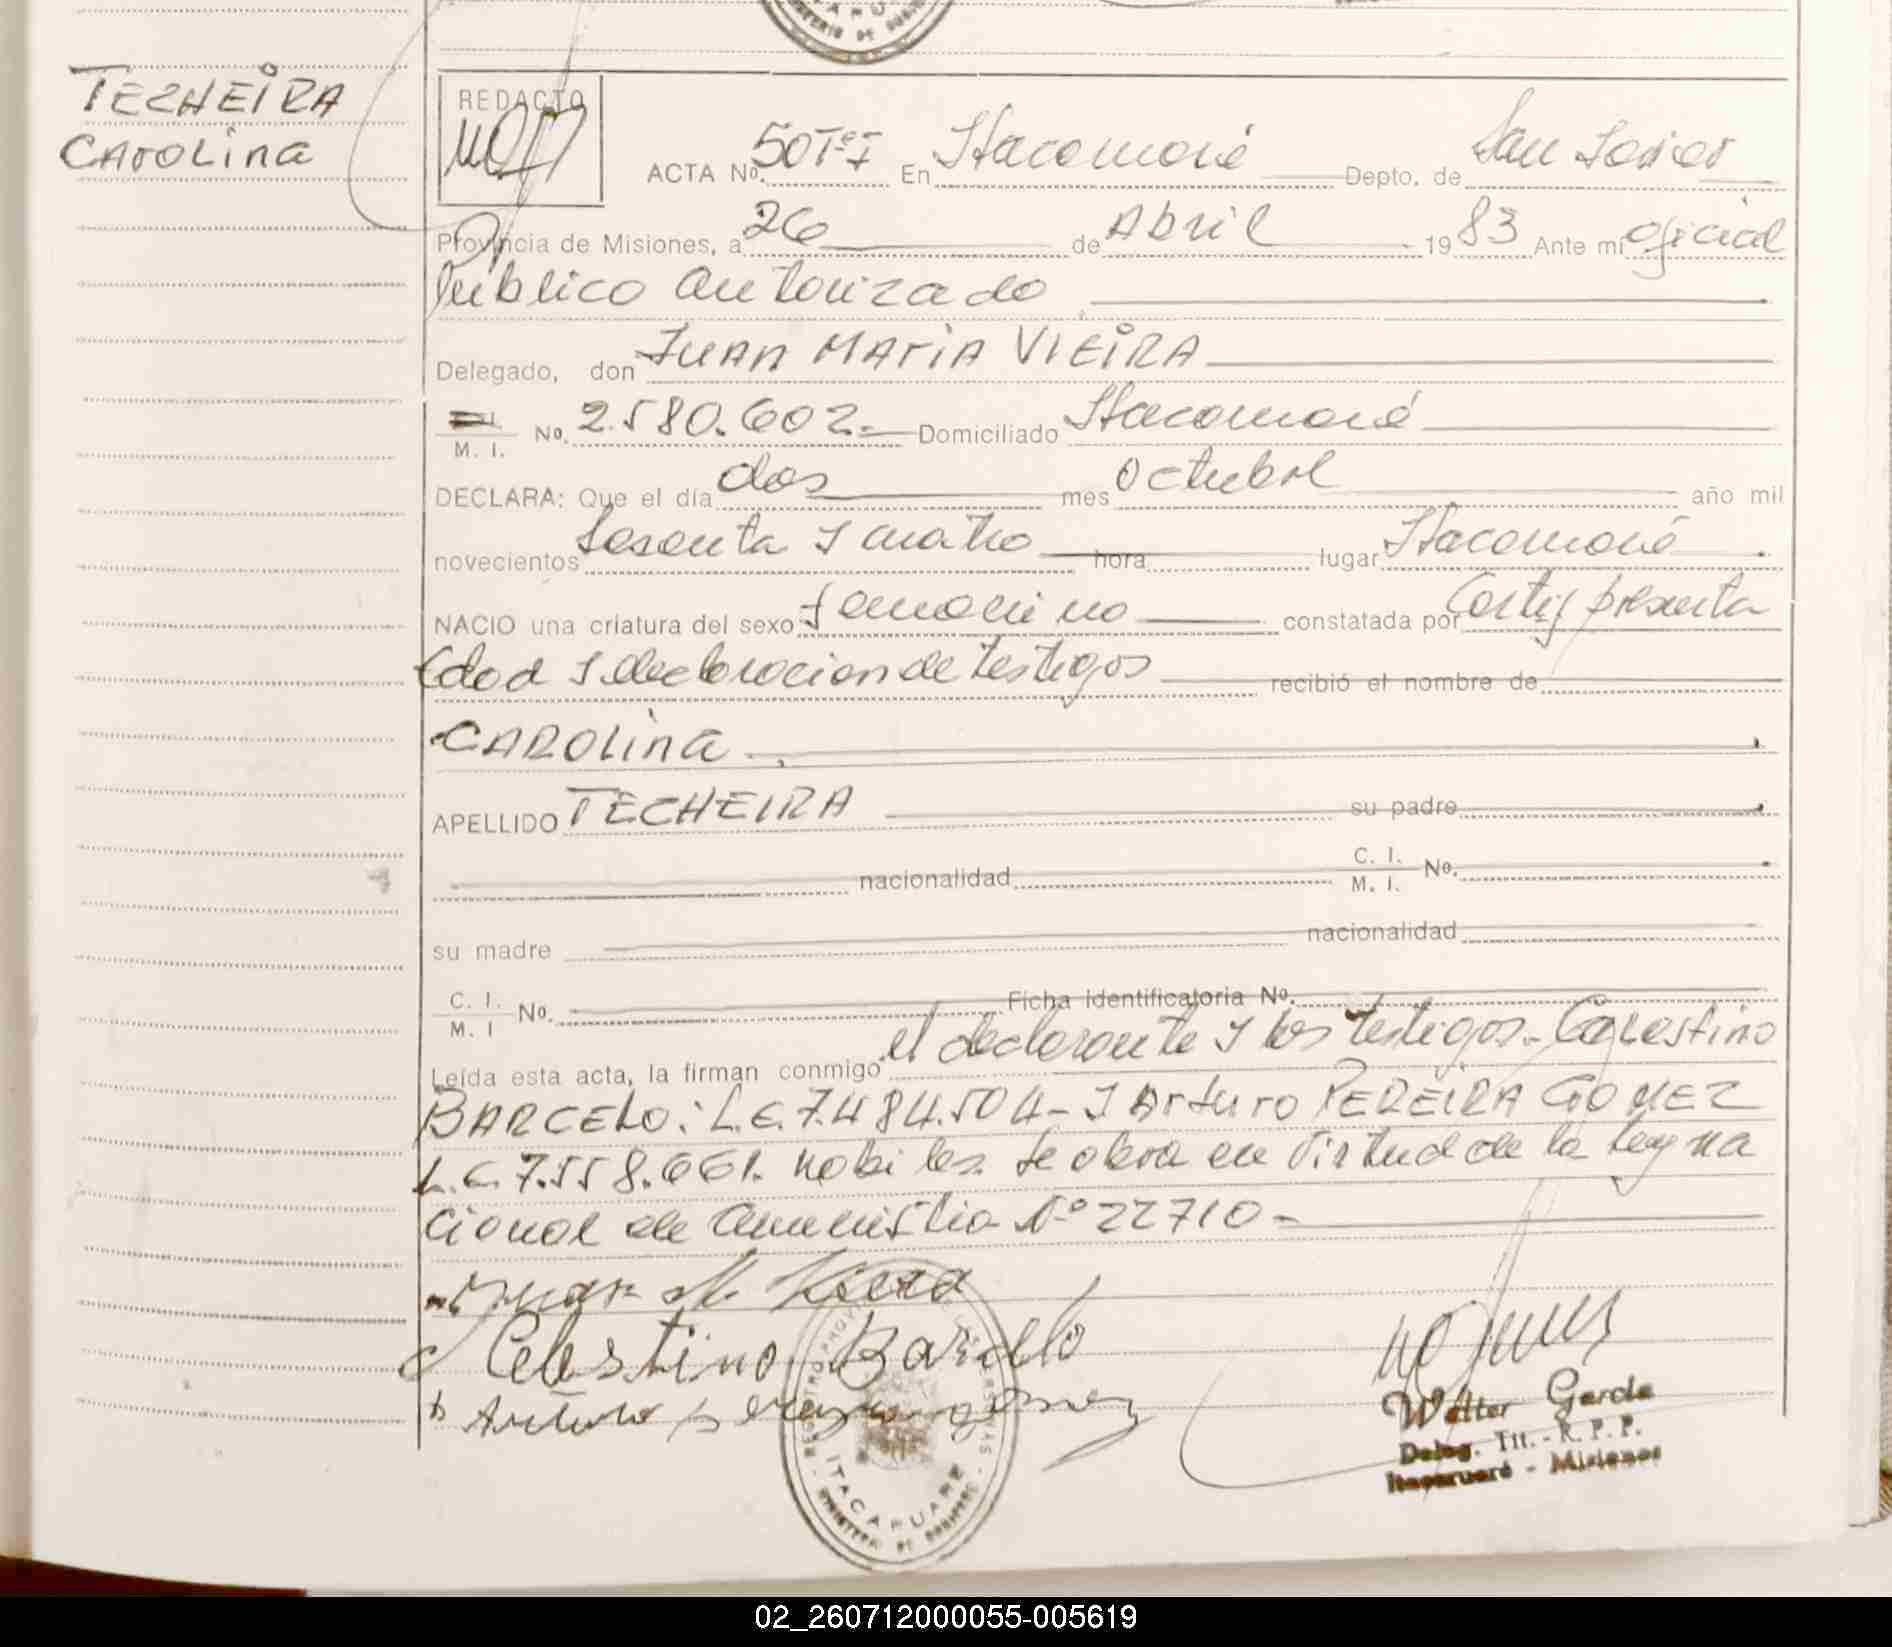 TECHEIRA
CAROLINA
REDACTO
ACTA No. 50 Tº I En Itacaruaré Depto. de San Javier
Provincia de Misiones, a 26 de Abril 1983 Ante mi oficial
Público autorizado
Delegado, don JUAN MARIA VIEIRA
M. I. No. 2.580.602.- Domiciliado Itacaruaré
DECLARA: Que el día dos mes octubre año mil
novecientos sesenta y cuatro hora lugar Itacaruaré
NACIO una criatura del sexo femenino constatada por Certif presenta
Edad y declaracion de testigos recibió el nombre de
CAROLINA
APELLIDO TECHEIRA su padre
nacionalidad C. I. M. I. No.
su madre nacionalidad
C. I. M. I No. Ficha Identificatoria No.
Leída esta acta, la firman conmigo el declarante y los testigos.- Celestino
BARCELO: L.E. 7.484.504- y Arturo PEREIRA GOMEZ
L.E 7.558.661. habiles. Se obra en virtud de la ley na
cional de amnistia Nº 22710-
Juan M. Vieira
Celestino Barcelo
Arturo Pereyra gomez
REGISTRO PROV. DE LAS PERSONAS
ITACARUARE
MINISTERIO DE GOBIERNO
Walter Garcia
Deleg. Tit. - R. P. P.
Itacaruaré - Misiones
02_260712000055-005619